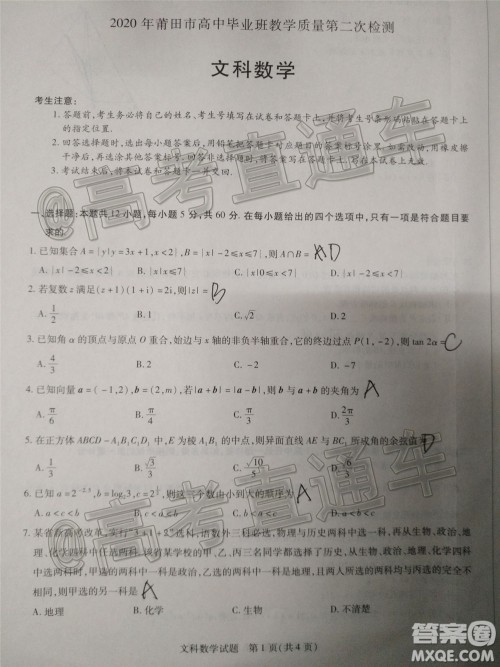 2020年莆田市高中毕业班教学质量第二次检测
文科数学
考生注意:
1. 答题前,考生务必将自己的姓名、考生号填写在试卷和答题卡上,并将考生号条形码粘贴在答题卡上
的指定位置.
2. 回答选择题时,选出每小题答案后,用铅笔把答题卡对应题目的答案标号涂黑.如需改动,用橡皮擦
干净后,再选涂其他答案标号.回答非选择题时,将答案写在答题卡上.写在本试卷上无效.
3. 考试结束后,将本试卷和答题卡一并交回.
一、选择题:本题共12小题,每小题5分,共60分.在每小题给出的四个选项中,只有一项是符合题目要
求的.
1. 已知集合A={y|y=3x+1,x<2},B={x|-2≤x<2},则A∩B= AD
A. {x|-2≤x<2} B. {x|x≤7} C. {x|0≤x≤7} D. {x|-2≤x≤7}
2. 若复数z满足(z+1)(1+i)=2i,则|z|= B
A. 1/2 B. 1 C. √2 D. 2
3. 已知角α的顶点与原点O重合,始边与x轴的非负半轴重合,它的终边过点P(1,-2),则tan 2α= C
A. 4/3 B. 2 C. -2
4. 已知向量a=(-1,2),b=(2,m),若|a+b|=|a-b|,则a与b的夹角为 A
A. π/2 B. π/4 C. π/3 D. 2π/3
5. 在正方体ABCD-A₁B₁C₁D₁中,E为棱A₁B₁的中点,则异面直线AE与BC₁所成角的余弦值是 D
A. 1/3 B. √3/3 C. √10/5
则这三个数由小到大的顺序为 A
A. a<b<c
7. 某省新高考改革,实行"3+1+2"选科,语数外三科必选,物理与历史两科中选一科,再从生物,政治,地
理,化学四科中任选两科.该省某学校的甲,乙两同学选了三科,甲选的两科是从生物,政治,化学四科
中任选,甲选的两科中的一科是政治,乙选的两科中有一科是地理,而且甲所选的两科均与乙不相同,
则甲选的另一科是 A
A. 地理 B. 化学 C. 生物 D. 不清楚
文科数学试题 第1页(共4页)
@高考直通车
@高考直通车
答案圈
MXQE.COM